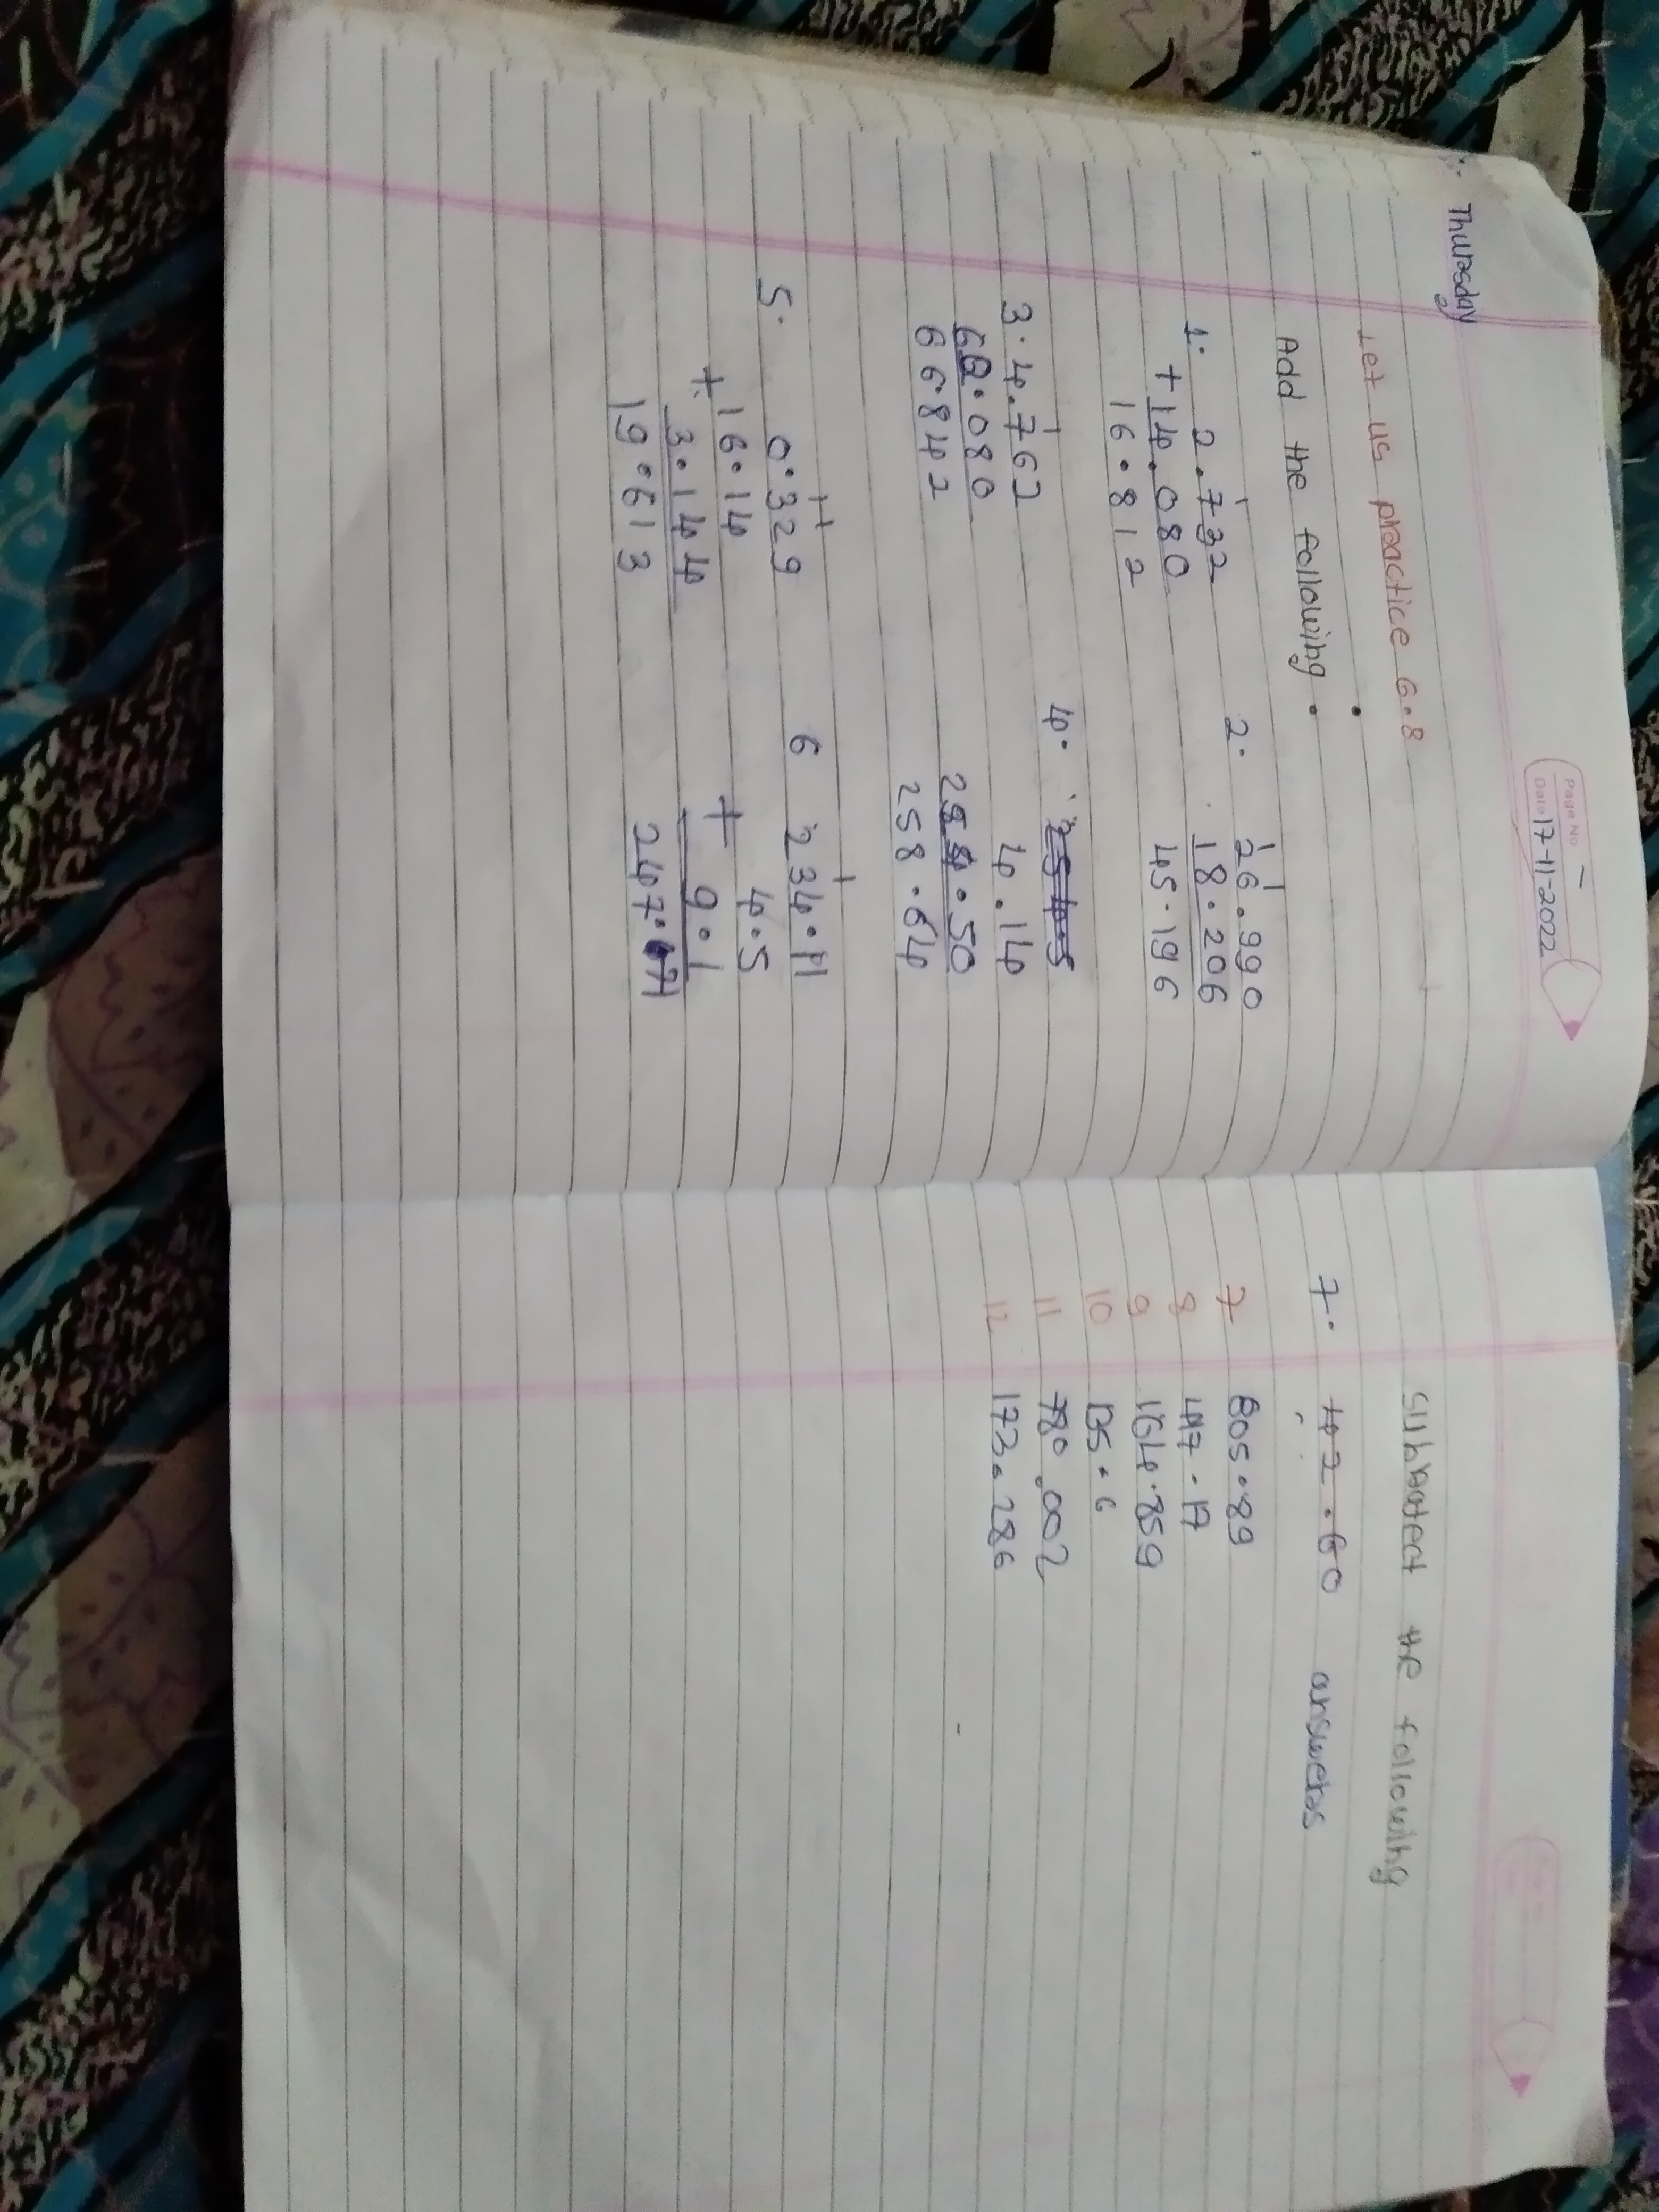 Page No
Date 17-11-2022
Thuresday
Let us preactice 6.8
Add the following.
1. 2.732
+ 14.080
16.812
2. 26.990
18.206
45.196
3. 4.762
62.080
66.842
4. 254.5
4.14
254.50
258.64
5. 0.329
+ 16.14
3.144
19.613
6 234.11
4.5
+ 9.1
247.71
Subtract the following
7. 47.60 answeres
7 805.89
8 417.17
9 164.859
10 135.6
11 780.002
12 173.286